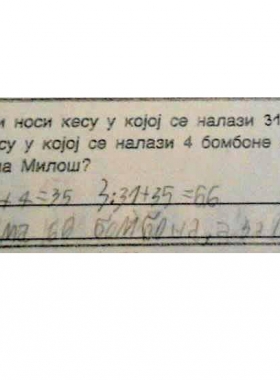 и носи кесу у којој се налази 31
су у којој се налази 4 бомбоне
на Милош?
+ 4 = 35 3:31+35=66
ма 60 бомбона, а за